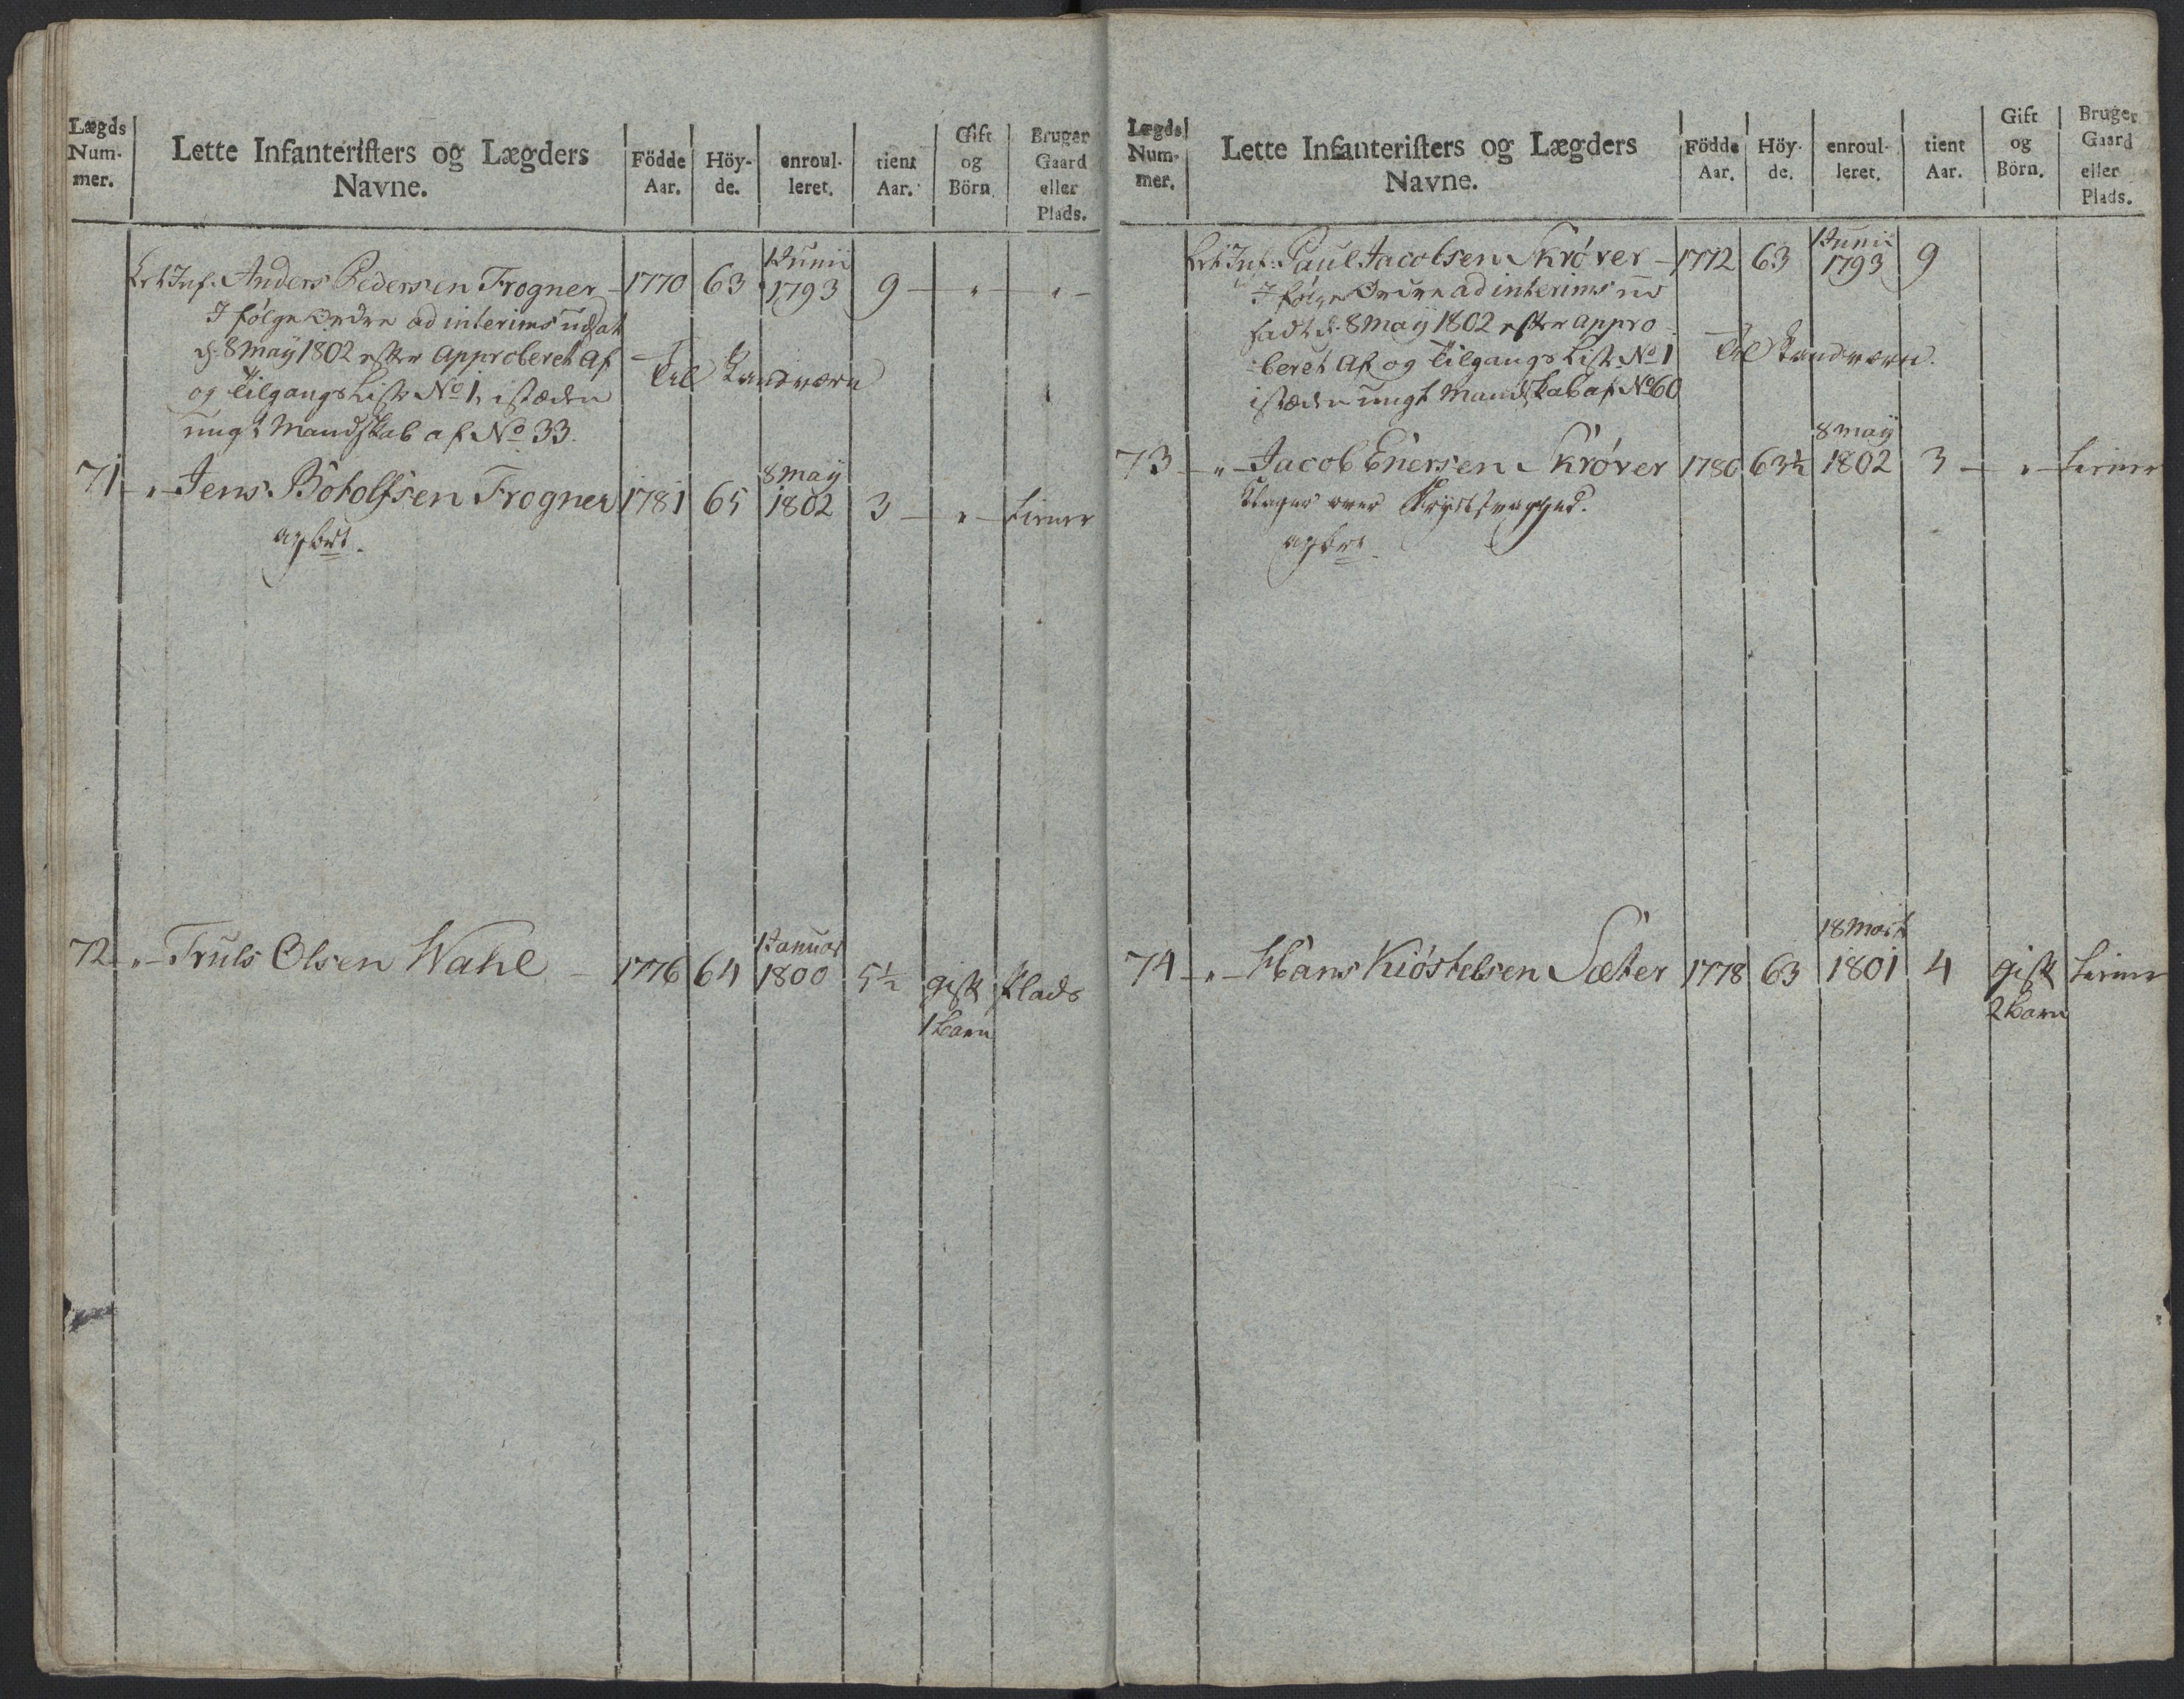 Lægds Num- mer.
Lette Infanteristers og Lægders Navne.
Födde Aar.
Höy- de.
enroul- leret.
tient Aar.
Gift og Börn
Bruger Gaard eller Plads.
Let Inf: Anders Pedersen Frogner 1770 63 1 Junii 1793 9 " "
I følge Ordre ad interims udsat
d: 8 may 1802 efter Approberet Af
og Tilgangs Liste No 1, istæden
ungt Mandskab af No 33.
Til Landværn
71 " Jens Botolfsen Frogner 1781 65 8 may 1802 3 "
72 " Truls Olsen Wahl 1776 64 1 Januar 1800 5½ gift 1 barn Plads
Lægds Num- mer.
Lette Infanteristers og Lægders Navne.
Födde Aar.
Höy- de.
enroul- leret.
tient Aar.
Gift og Börn.
Bruger Gaard eller Plads.
Let Inf: Paul Jacobsen Skrøver 1772 63 1 Junii 1793 9
I følge Ordre ad interims ud
sadt d: 8 may 1802 efter appro
beret Af og Tilgangs Liste No 1
istæden ungt Mandskab af No 60
Til Landværn.
73 " Jacob Enersen Skrøver 1780 63½ 8 may 1802 3 "
Klager over Brystsvaghed.
74 " Hans Kiöstelsen Sæter 1778 63 18 Marts 1801 4 gift 2 barn